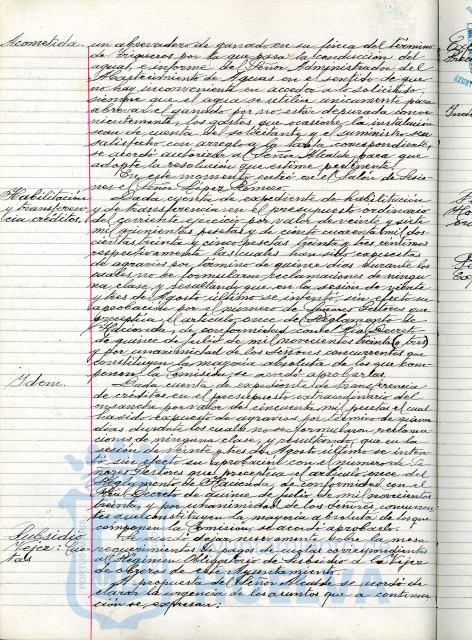 Acometida. un abrevadero de ganado en su finca del término
de Trigueros por la que pasa la conducción del
agua, e informe del Señor Administrador del
Abastecimiento de Aguas en el sentido de que
no hay inconveniente en acceder a lo solicitado,
siempre que el agua se utilice unicamente para
abrevar el ganado por no estar depurada conve-
nientemente, los gastos que ocasione la instalación
sean de cuenta del solicitante y el suministro sea
satisfecho con arreglo a la tarifa correspondiente,
se acordó autorizar al Señor Alcalde para que
adopte la resolución que estime pertinente.
En este momento entró en el Salón de Sesio-
nes el Señor López Romero.
Habilitación Dada cuenta de expediente de habilitación
y transferen- y de transferencia en el presupuesto ordinario
cia créditos. del corriente ejercicio por valor de veinte y siete
mil pesetas y de cinco cuarenta mil dos
cientas treinta y cinco pesetas treinta y tres céntimos
respectivamente, los cuales han sido expuestos
de agravios por término de quince días durante los
cuales no se formularon reclamaciones de ningu-
na clase, y resultando que en la sesión de veinte
y tres de Agosto último se intentó, sin efecto su
aprobación por el número de Señores Gestores que
preceptua el artículo once del Reglamento de
Hacienda, de conformidad con el Real Decreto
de quince de julio de mil novecientos treinta (e tres)
y por unanimidad de los Señores concurrentes que
constituyen la mayoría absoluta de los que com-
ponen la Comisión, se acordó aprobarlas.
Idem. Dada cuenta de expediente de transferencia
de créditos en el presupuesto extraordinario del
ensanche por valor de cincuenta mil pesetas el cual
ha sido expuesto de agravios por término de quince
días durante los cuales no se formularon reclama-
ciones de ninguna clase, y resultando, que en la
sesión de veinte y tres de Agosto último se inten-
tó sin efecto su aprobación con el número de Se-
ñores Gestores que preceptua el artículo once del
Reglamento de Hacienda, de conformidad con el
Real Decreto de quince de julio de mil novecientos
treinta, y por unanimidad de los Señores concurren-
tes que constituyen la mayoría absoluta de los que
componen la Comisión, se acordó aprobarlo.
Subsidio Se acordó dejar nuevamente sobre la mesa
Vejez: Cuo- requerimientos de pagos de cuotas correspondientes
tas al Régimen Obligatorio de Subsidio de la Vejez
de obreros de este Ayuntamiento.
A propuesta del Señor Alcalde se acordó de-
clarar la urgencia de los asuntos que a continua-
ción se expresan: